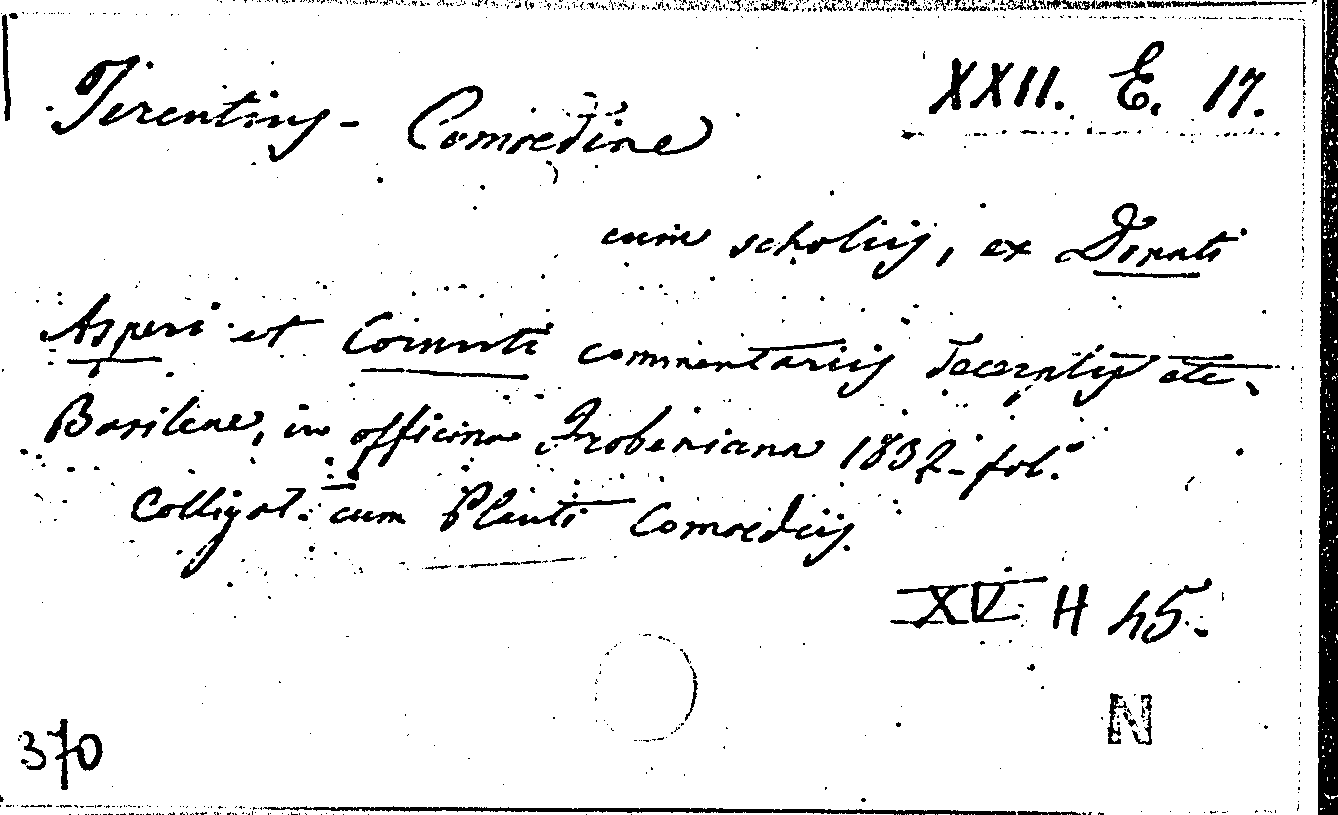 XXII. E. 17.
Terentius - Comoediae
cum scholiis, ex Donati
Asperi et Cornuti commentariis decerptis etc.
Basileae, in officina Frobeniana 1832 - fol.
Colligat. cum Plauti Comoediis.
XV H 45.
N
370